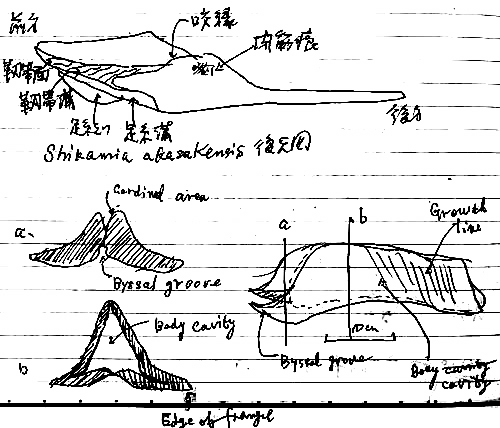 前方
咬縁
閉筋痕
靭帯面
靭帯溝
足糸幻 足糸溝
後方
Shikamia akasakensis 復元図
Cardinal area
a
Byssal groove
Body cavity
b
Edge of frangel
a
b
Growth line
10cm
Byssal groove
cavity